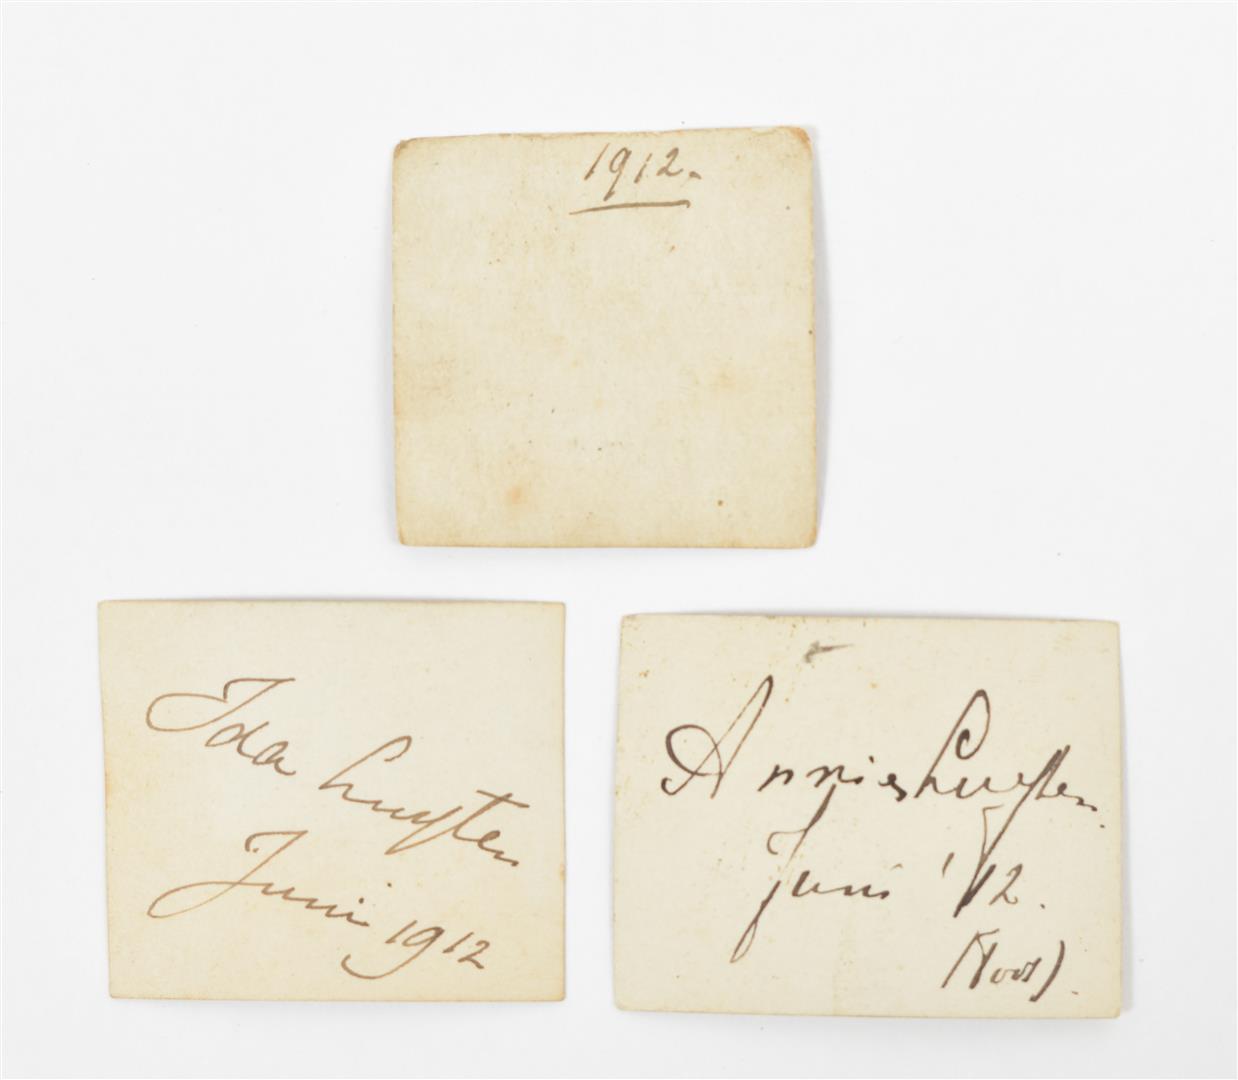 1912.
Ida Luyten
Juni 1912
Annie Luyten.
Juni '12.